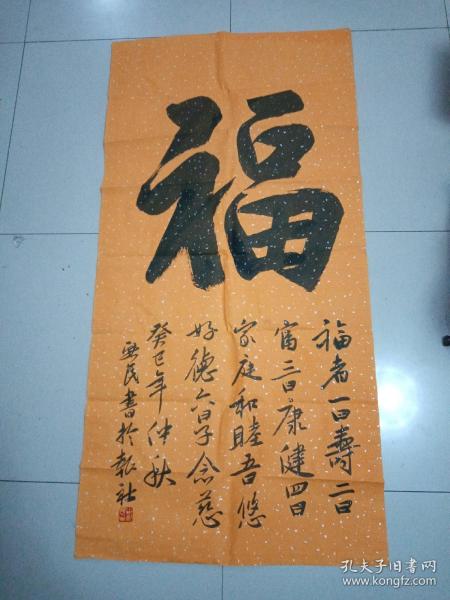 福
福者一曰壽二曰
富三曰康健四曰
家庭和睦吾悠
好德六曰子念慈
癸巳年仲秋
民書於報社
孔夫子旧书网
www.kongfz.com